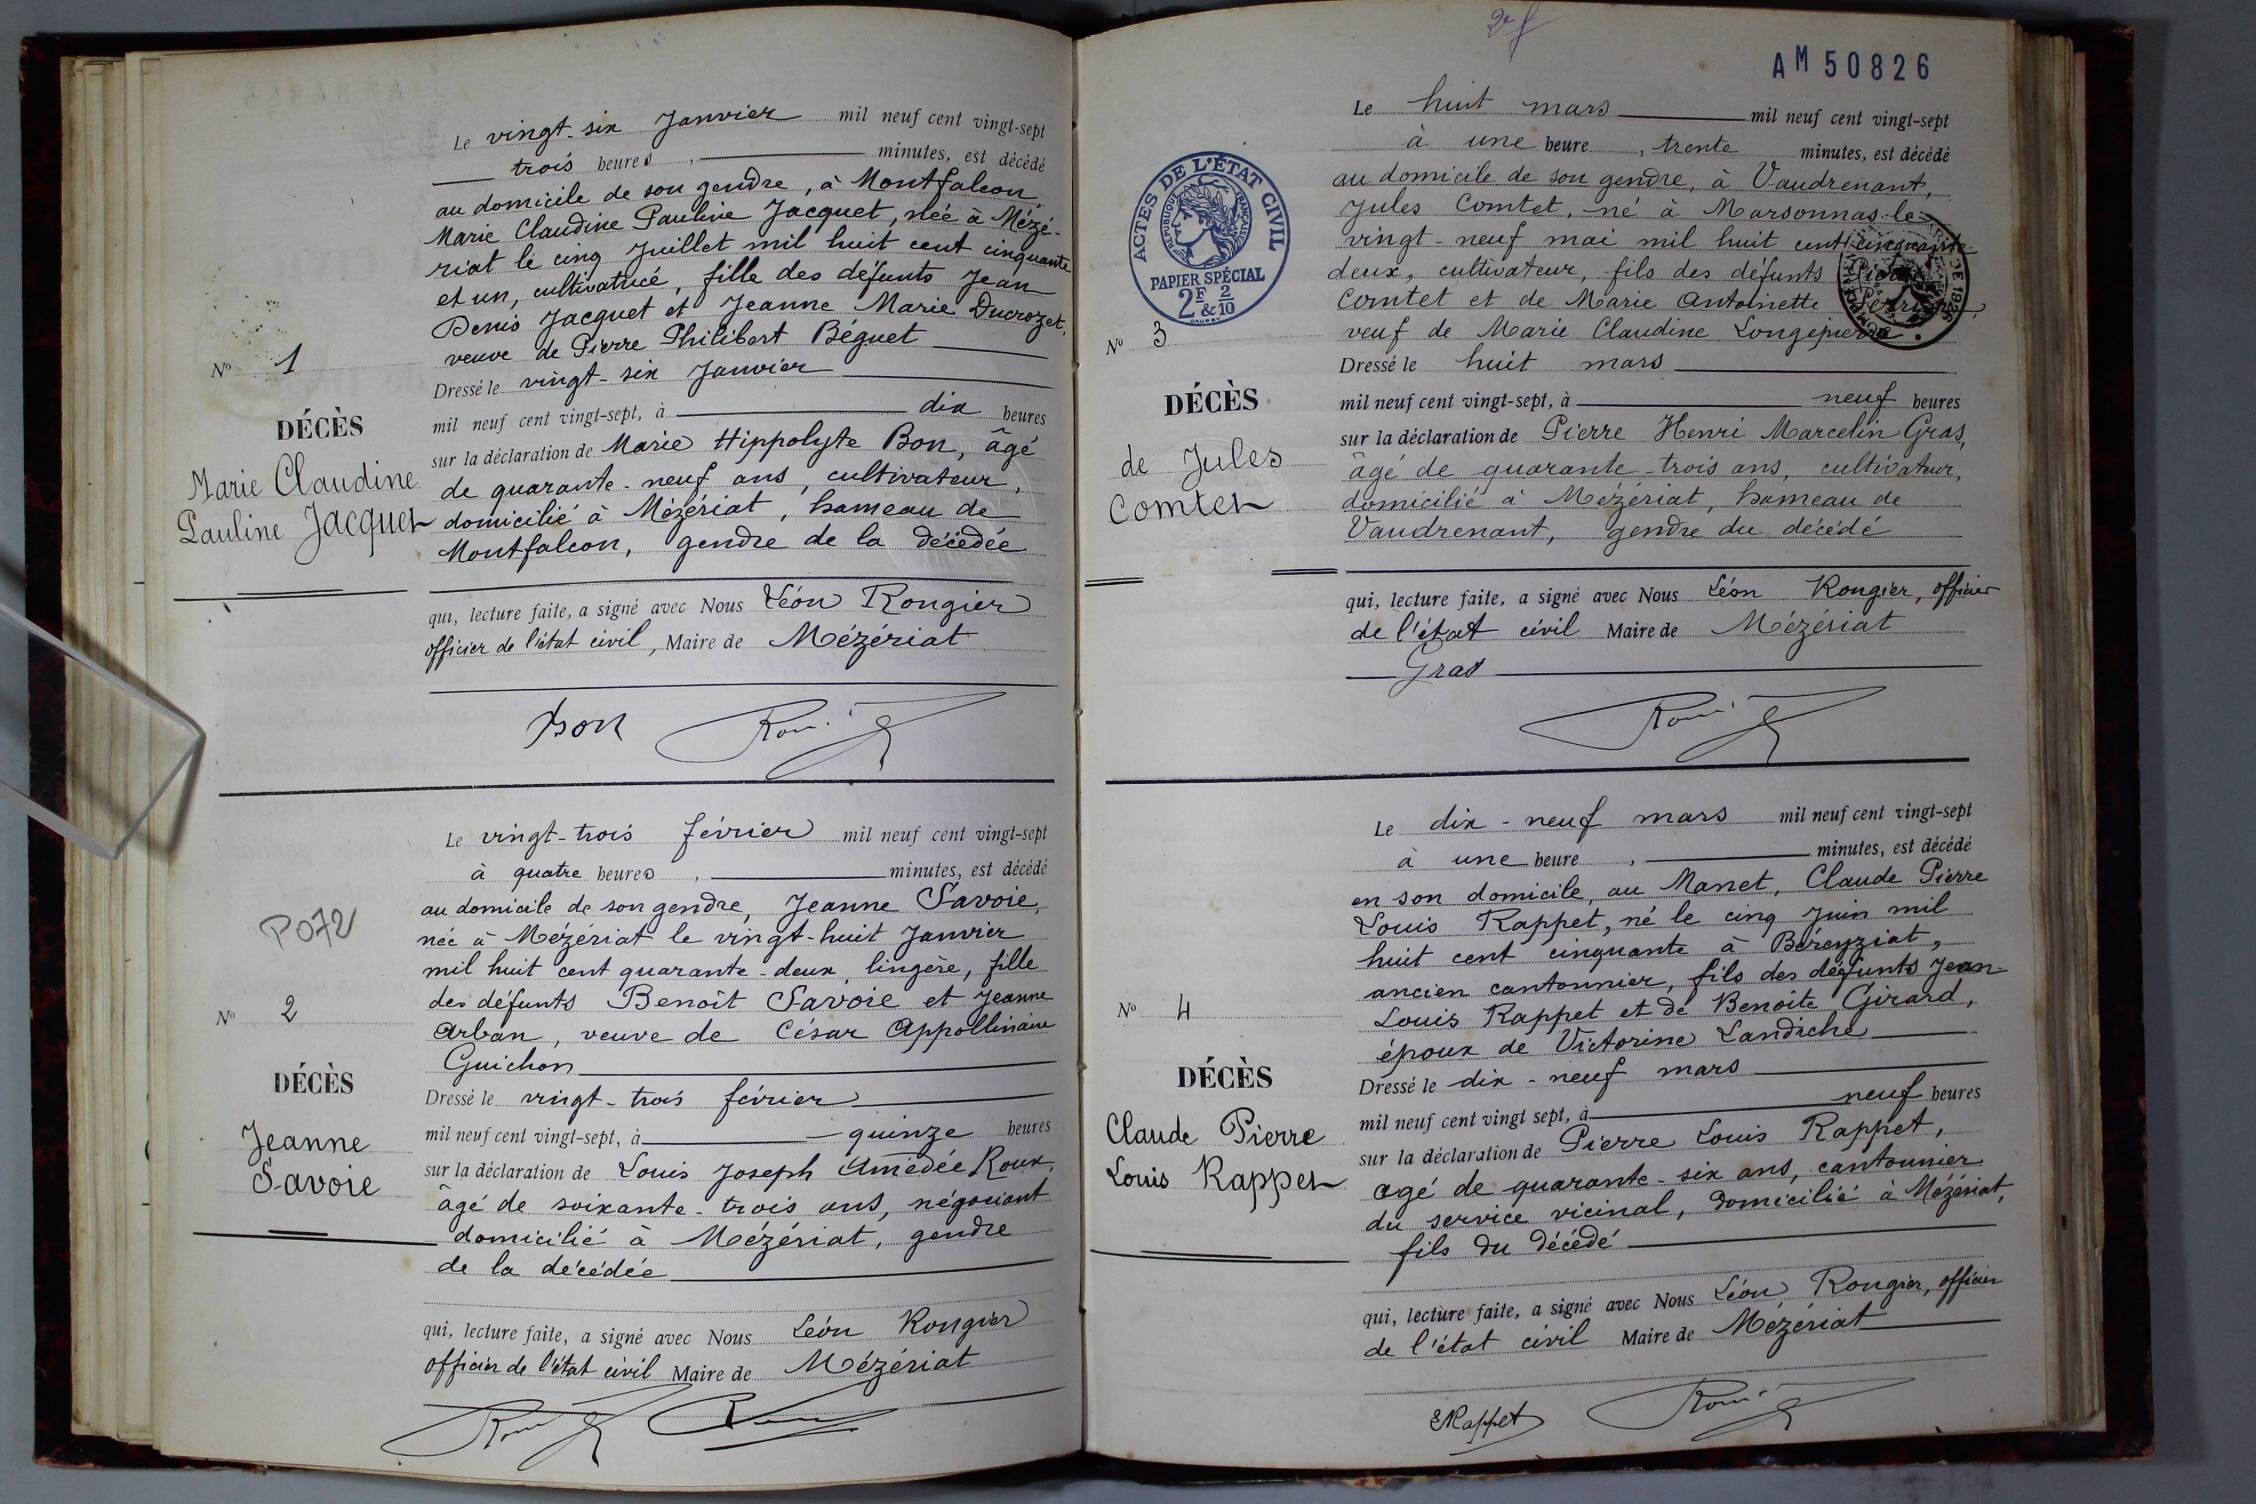 Le vingt-six Janvier mil neuf cent vingt-sept
trois heures, minutes, est décédé
au domicile de son gendre, à Montfalcon,
Marie Claudine Pauline Jacquet, née à Mézé-
riat le cinq Juillet mil huit cent cinquante
et un, cultivatrice, fille des défunts Jean
Denis Jacquet et Jeanne Marie Ducrozet,
veuve de Pierre Philibert Béguet
Dressé le vingt-six Janvier
mil neuf cent vingt-sept, à dix heures
sur la déclaration de Marie Hippolyte Bon, âgé
de quarante-neuf ans, cultivateur,
domicilié à Mézériat, hameau de
Montfalcon, gendre de la décédée
qui, lecture faite, a signé avec Nous Léon Rougier
officier de l'état civil, Maire de Mézériat
Bon
No 1
DÉCÈS
Marie Claudine
Pauline Jacquet
Le vingt-trois février mil neuf cent vingt-sept
à quatre heures, minutes, est décédé
au domicile de son gendre, Jeanne Savoie,
née à Mézériat le vingt-huit Janvier
mil huit cent quarante-deux, lingère, fille
des défunts Benoît Savoie et Jeanne
Arban, veuve de César Appollinaire
Guichon
Dressé le vingt-trois février
mil neuf cent vingt-sept, à quinze heures
sur la déclaration de Louis Joseph Amédée Roux,
âgé de soixante-trois ans, négociant
domicilié à Mézériat, gendre
de la décédée
qui, lecture faite, a signé avec Nous Léon Rougier
officier de l'état civil Maire de Mézériat
P072
No 2
DÉCÈS
Jeanne
Savoie
AM 50826
Le huit mars mil neuf cent vingt-sept
à une heure, trente minutes, est décédé
au domicile de son gendre, à Vaudrenant,
Jules Comtet, né à Marsonnas le
vingt-neuf mai mil huit cent cinquante-
deux, cultivateur, fils des défunts
Comtet et de Marie Antoinette
veuf de Marie Claudine Longepierre
Dressé le huit mars
mil neuf cent vingt-sept, à neuf heures
sur la déclaration de Pierre Henri Marcelin Gras,
âgé de quarante-trois ans, cultivateur,
domicilié à Mézériat, hameau de
Vaudrenant, gendre du décédé
qui, lecture faite, a signé avec Nous Léon Rougier, officier
de l'état civil Maire de Mézériat
Gras
ACTES DE L'ÉTAT CIVIL
RÉPUBLIQUE FRANÇAISE
PAPIER SPÉCIAL
2F & 2/10
No 3
DÉCÈS
de Jules
Comtet
Le dix-neuf mars mil neuf cent vingt-sept
à une heure, minutes, est décédé
en son domicile, au Manet, Claude Pierre
Louis Rappet, né le cinq Juin mil
huit cent cinquante à Béreyziat,
ancien cantonnier, fils des défunts Jean-
Louis Rappet et de Benoite Girard,
époux de Victorine Landiche
Dressé le dix-neuf mars
mil neuf cent vingt sept, à neuf heures
sur la déclaration de Pierre Louis Rappet,
agé de quarante-six ans, cantonnier
du service vicinal, domicilié à Mézériat,
fils du décédé
qui, lecture faite, a signé avec Nous Léon Rougier, officier
de l'état civil Maire de Mézériat
Rappet
No 4
DÉCÈS
Claude Pierre
Louis Rappet